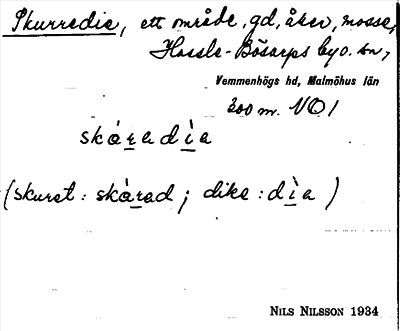 Skurredie, ett område, gd, åker, mosse,
Hassle-Bösarps by o. sn,
Vemmenhögs hd, Malmöhus län
200 m. NO /
skáradìa
(skurat: skárad; dike: dìa)
NILS NILSSON 1934